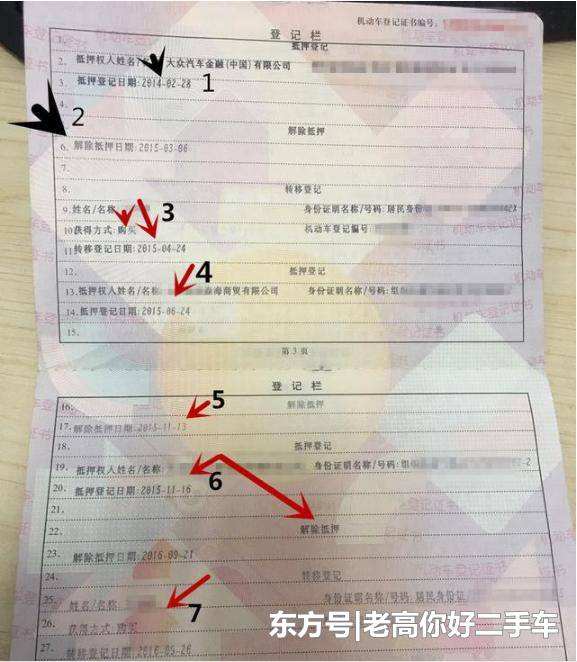 机动车登记证书编号:
登记栏
1. 抵押登记
2. 抵押权人姓名/ 大众汽车金融(中国)有限公司
3. 抵押登记日期:2014-02-28 1
4.
2
解除抵押
6. 解除抵押日期:2015-03-06
7.
8. 转移登记
9. 姓名/名称 身份证明名称/号码:居民身份证
3
10. 获得方式:购买 机动车登记编号:
11. 转移登记日期:2015-04-24
12. 抵押登记
4
13. 抵押权人姓名/名称 海商贸有限公司 身份证明名称/号码:组
14. 抵押登记日期:2015-06-24
15.
第3页
登记栏
16. 解除抵押
5
17. 解除抵押日期:2015-11-13
18. 抵押登记
19. 抵押权人姓名/名称 身份证明名称/号码:组
6
20. 抵押登记日期:2015-11-16
21.
22. 解除抵押
23. 解除抵押日期:2016-03-21
24. 转移登记
25. 姓名/名称 身份证明名称/号码:居民身份证
7
26. 获得方式:购买
27. 转移登记日期:2016-05-26
东方号|老高你好二手车